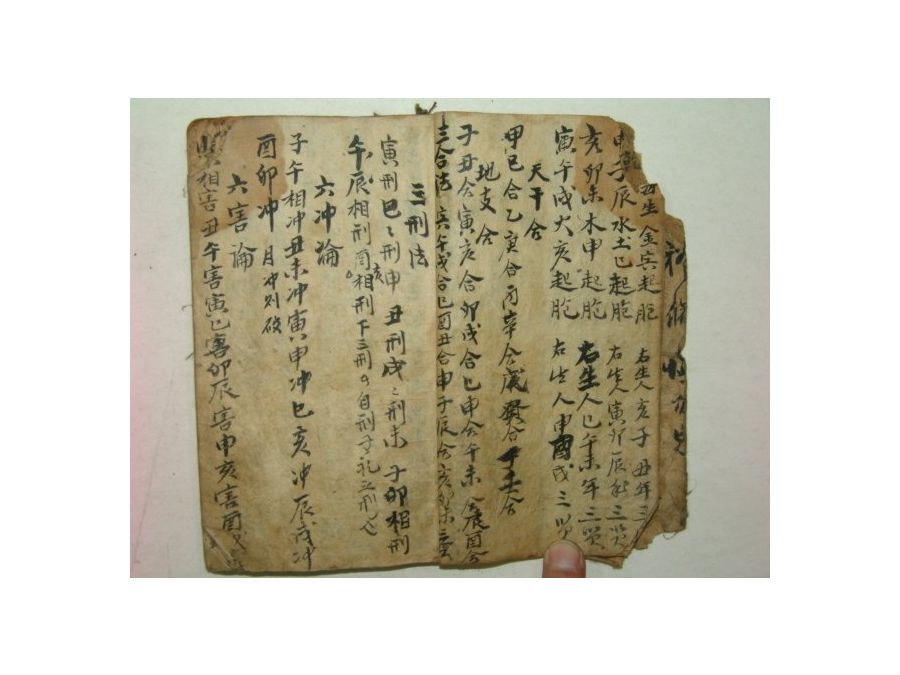 丑生 金寅起胞 右生人亥子丑年三
申子辰水土巳起胞 右生人寅卯辰年三災
亥卯未木申起胞 右生人巳午未年三災
寅午戌火亥起胞 右生人申酉戌三災
天干合
甲己合乙庚合丙辛合戊癸合丁壬合
地支合
子丑合寅亥合卯戌合巳申合午未合辰酉合
三合法 寅午戌合巳酉丑合申子辰合亥卯未三合
三刑法
寅刑巳巳刑申 丑刑戌戌刑未 子卯相刑
午辰相刑酉亥相刑下三刑
六冲論
子午相冲丑未冲寅申冲巳亥冲辰戌冲
酉卯冲 月冲則破
六害論
相害丑午害寅巳害卯辰害申亥害酉